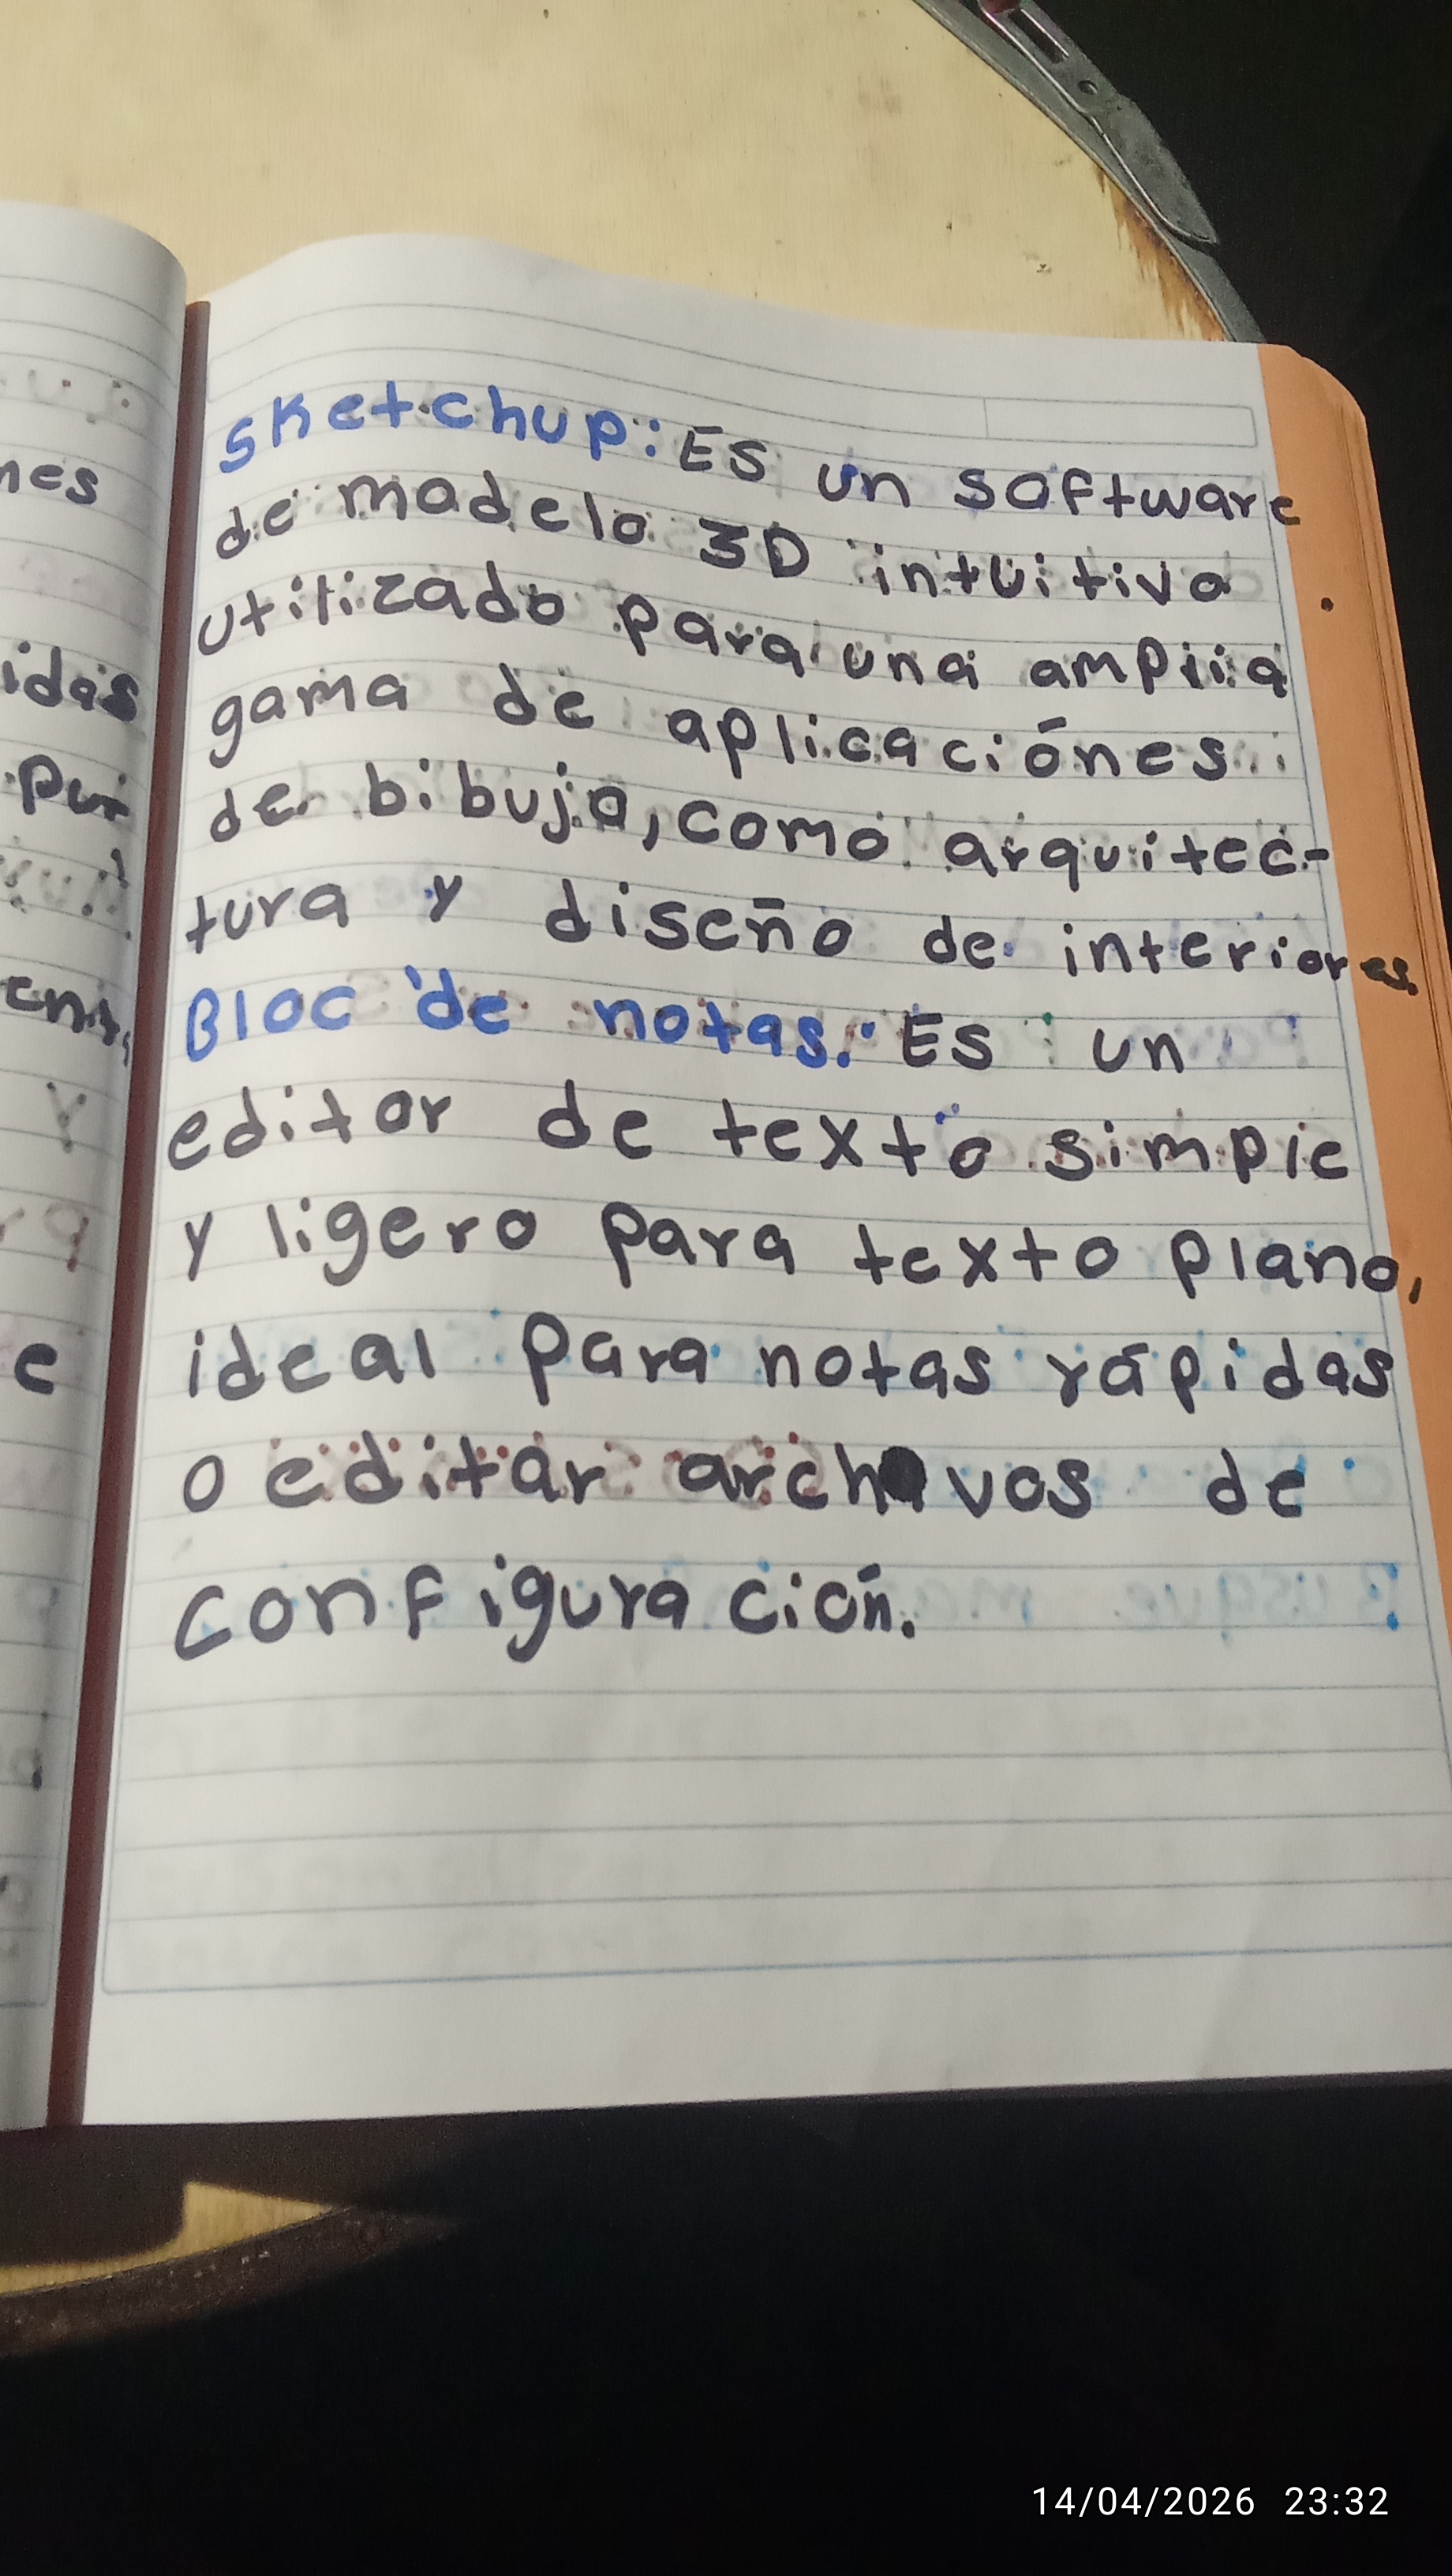 nes
idas
Pur
y
e
Sketchup: ES un software
de modelo 3D intuitivo
utilizado para una amplia
gama de aplicaciónes
de bibujo, como arquitec-
tura y diseño de interiores.
Bloc de notas: ES un
editor de texto simple
y ligero para texto plano,
ideal para notas rápidas
o editar archivos de
configuración.
14/04/2026 23:32